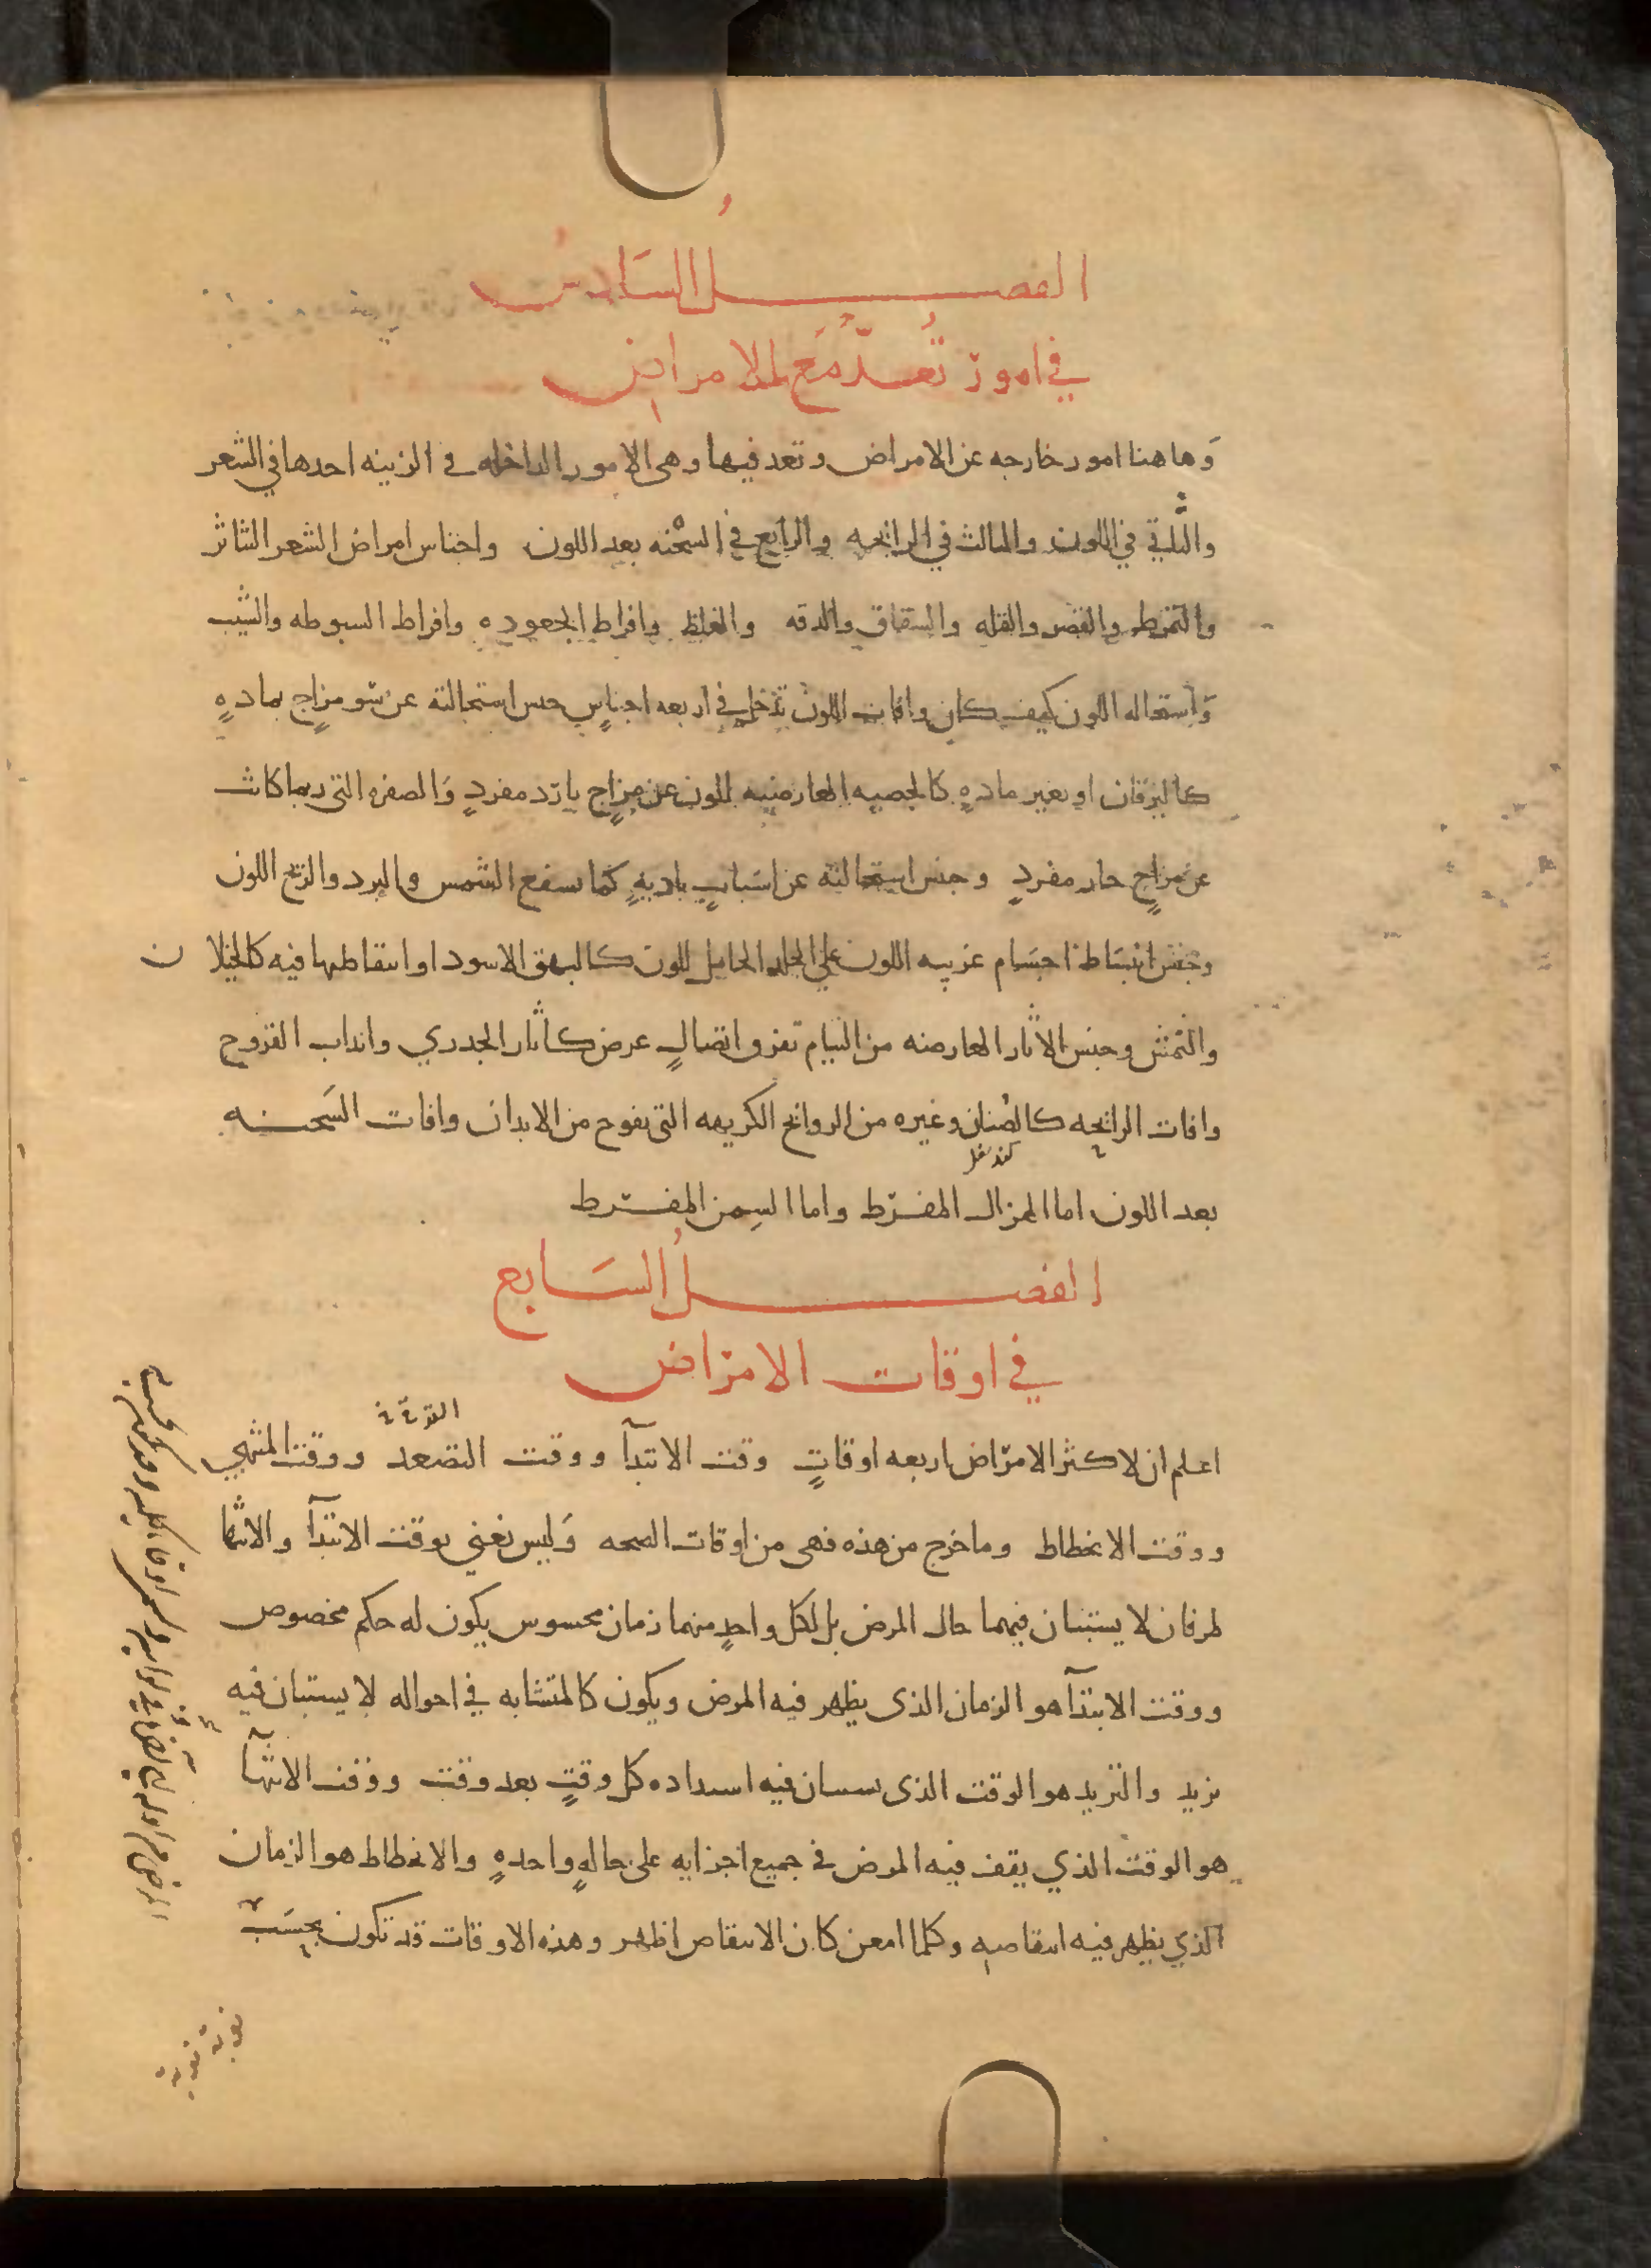 الفصل السادس
في امور تُعدّ مع الامراض
وَهاهنا امور خارجه عن الامراض وتعد فيها وهى الامور الداخله في الزينه احدها في الشعر
والثاني في اللون والثالث في الرائحه والرابع في السحْنه بعد اللون واجناس امراض الشعر التناثر
والتمرط والقصر والقله والشقاق والدقه والغلظ وافراط الجعوده وافراط السبوطه والشيب
وَاستحاله اللون كيف كان وافات اللون تدخل في اربعه اجناسٍ جنس استحالته عن سو مزاجٍ بمادهٍ
كاليرقان او بغير مادهٍ كالجصيه العارضيه للون عن مزاجٍ باردٍ مفردٍ وَالصفره التى ربما كانت
عن مزاجٍ حار مفردٍ وجنس استحالته عن اسَبابٍ باديهٍ كما يسفع الشمس والبرد والريح اللون
وجنس انبسَاط اجسَام غريبه اللون على الجلد الحامل للون كالبهق الاسود او انتقاطها فيه كالخيلان
والنمش وجنس الاثار العارضه من التيام تفرق اتصالٍ عرض كاثار الجدري وانداب القروح
وافات الرائحه كالصُنان وغيره من الروائح الكريهه التى تفوح من الابدان وافات السَحنه
بعد اللون اما الهزال المفرط واما السِمن المفرط
الفصلُ السَابع
في اوقات الامراض
اعلم ان لاكثر الامرَاض اربعه اوقاتٍ وقت الابتدآ ووقت التصعد ووقت المنتهي
ووقت الانحطاط وما خرج من هذه فهى من اوقات الصحه وَليس نعني بوقت الابتدآ والانتها
طرفان لا يستبان فيهما حال المرض بل لكل واحدٍ منهما زمان محسوس يكون له حكم مخصوص
ووقت الابتدآ هو الزمان الذى يظهر فيه المرض ويكون كالمتشابه في احواله لا يستبان فيه
تزيد والتزيد هو الوقت الذى يستبان فيه اشتداده كل وقتٍ بعد وقت ووقت الانتهآ
هو الوقت الذي يقف فيه المرض في جميع اجزايه على حالهٍ واحدهٍ والانحطاط هو الزمان
الذي يظهر فيه انتقاصه وكلما امعن كان الانتقاص اظهر وهذه الاوقات قد تكون بحسَب
نوبة نوبة